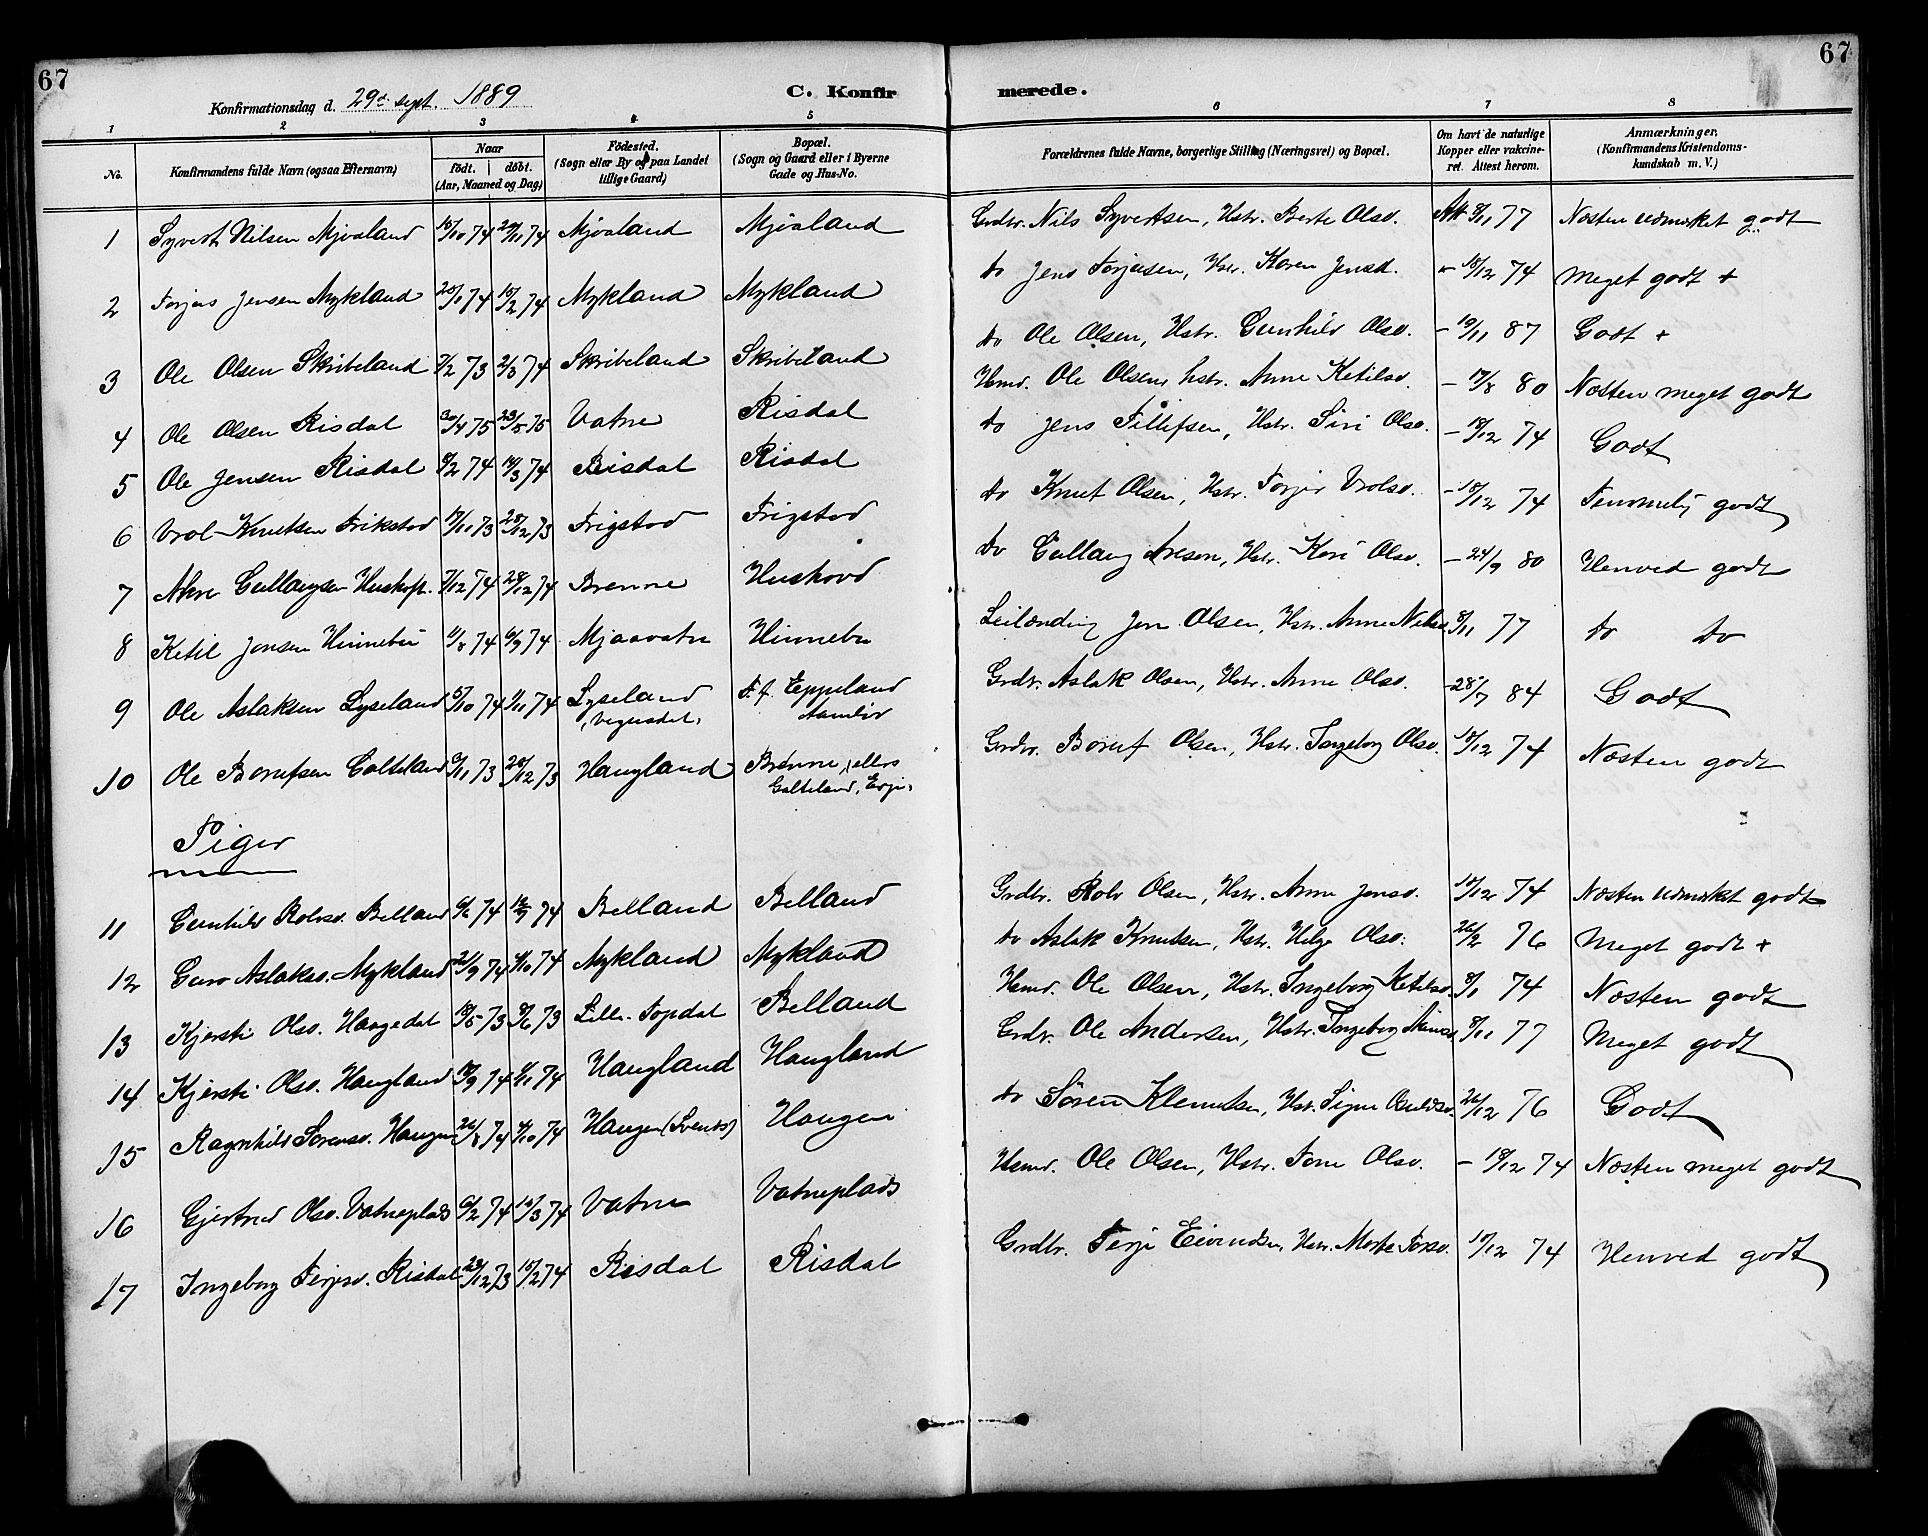 67
67
Konfirmationsdag d. 29de sept. 1889
C. Konfirmerede.
1 2 3 4 5 6 7 8
No.
Konfirmandens fulde Navn (ogsaa Efternavn)
Naar
födt. | døbt.
(Aar, Maaned og Dag)
Födested.
(Sogn eller By og paa Landet
tillige Gaard)
Bopæl.
(Sogn og Gaard eller i Byerne
Gade og Hus-No.
Forældrenes fulde Navne, borgerlige Stilling (Næringsvei) og Bopæl.
Om havt de naturlige
Kopper eller vakcine-
ret. Attest herom.
Anmærkninger.
(Konfirmandens Kristendoms-
kundskab m. V.)
1 Syvert Nilsen Mjvaland 15/10 74 29/11 74 Mjvaland Mjvaland Grdbr. Nils Syvertsen, Hstr. Berte Olsd. Att. 8/11 77 Næsten udmærket godt
2 Torjus Jensen Mykland 20/1 74 15/2 74 Mykland Mykland do Jens Torjusen, Hstr. Karen Jensd. - 18/12 74 Meget godt +
3 Ole Olsen Skribeland 7/2 73 2/3 74 Skribeland Skribeland do Ole Olsen, Hstr. Gunhild Olsd. - 19/11 87 Godt +
4 Ole Olsen Risdal 30/4 75 23/5 75 Vatne Risdal Hsmd. Ole Olsen, hstr. Anne Ketilsd. - 17/8 80 Næsten meget godt
5 Ole Jensen Risdal 8/2 74 14/3 74 Risdal Risdal do Jens Tellefsen, Hstr. Siri Olsd. - 18/12 74 Godt
6 Vrol Knutsen Frikstad 17/11 73 28/12 73 Frigstad Frigstad do Knut Olsen, Hstr. Torjer Vrolsd. - 18/12 74 Temmelig godt
7 Gullaugsen 7/12 74 28/12 74 Brenne Hushovd do Gullaug Aresen, Hstr. Kari Olsd. - 24/9 80 Henved godt
8 Ketil Jonsen Hinnebu 11/8 74 6/9 74 Mjaavatn Hinnebu Leilænding Jon Olsen, Hstr. Anne Nilsd. 8/11 77 do do
9 Ole Aslaksen Lyseland 5/10 74 1/11 74 Lyseland
Vegusdal, T. f. Eppeland
Aamlid Grdbr. Aslak Olsen, Hstr. Anne Olsd. - 28/7 84 Godt
10 Ole Borufsen Galteland 9/11 73 26/12 73 Haugland Brenne, ellers
Galteland, Evje, Grdbr. Boruf Olsen, Hstr. Ingeborg Olsd. 18/12 74 Næsten godt
Piger
11 Gunhild Rolvsd. Belland 6/6 74 12/7 74 Belland Belland Grdbr. Rolv Olsen, Hstr. Anne Jensd. 18/12 74 Næsten udmærket godt
12 Guro Aslaksd. Mykland 21/9 74 4/10 74 Mykland Mykland do Aslak Knutsen, Hstr. Helge Olsd. 26/2 76 Meget godt +
13 Kjersti Olsd. Haugedal 18/5 73 8/6 73 Lille-Topdal Belland Hsmd. Ole Olsen, Hstr. Ingeborg Ketilsd. 8/1 74 Næsten godt
14 Kjersti Olsd. Haugland 18/9 74 1/11 74 Haugland Haugland Grdbr. Ole Andersen, Hstr. Ingeborg 8/11 77 Meget godt
15 Ragnhild Sørensd. Haugen 26/8 74 4/10 74 Haugen Haugen do Søren Klemetsen, Hstr. Signe 26/12 76 Godt
16 Gjertrud Olsd. Vatneplads 6/2 74 15/3 74 Vatne Vatneplads Hsmd. Ole Olsen, Hstr. Tone Olsd. - 18/12 74 Næsten meget godt
17 Ingeborg Terjesd. Risdal 23/12 73 15/2 74 Risdal Risdal Grdbr. Terje Eivindsen, Hstr. Marte Torsd. 18/12 74 Henved godt